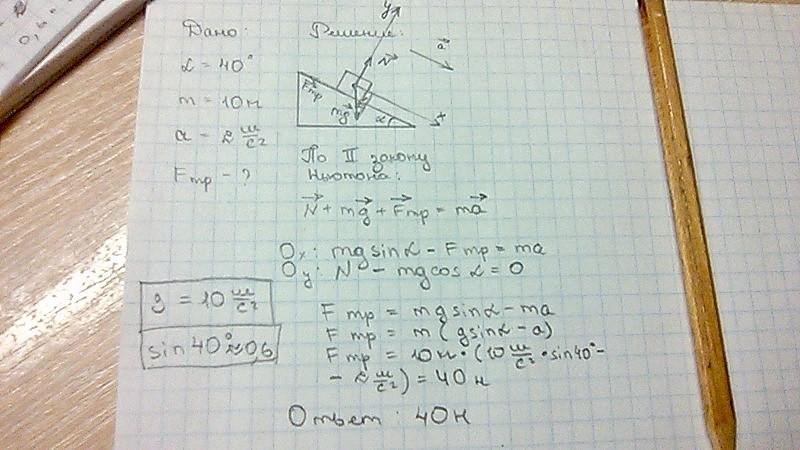 Дано:
α = 40°
m = 10 н
a = 2 м/с²
Fтр - ?
Решение:
y
N
a
Fтр
mg
α
x
По II закону
Ньютона:
N + mg + Fтр = ma
Ox: mg sinα - Fтр = ma
Oy: N - mg cos α = 0
g = 10 м/с²
sin 40° ≈ 0,6
Fтр = mg sinα - ma
Fтр = m(g sinα - a)
Fтр = 10 н · (10 м/с² · sin 40° -
- 2 м/с²) = 40 н
Ответ: 40 н